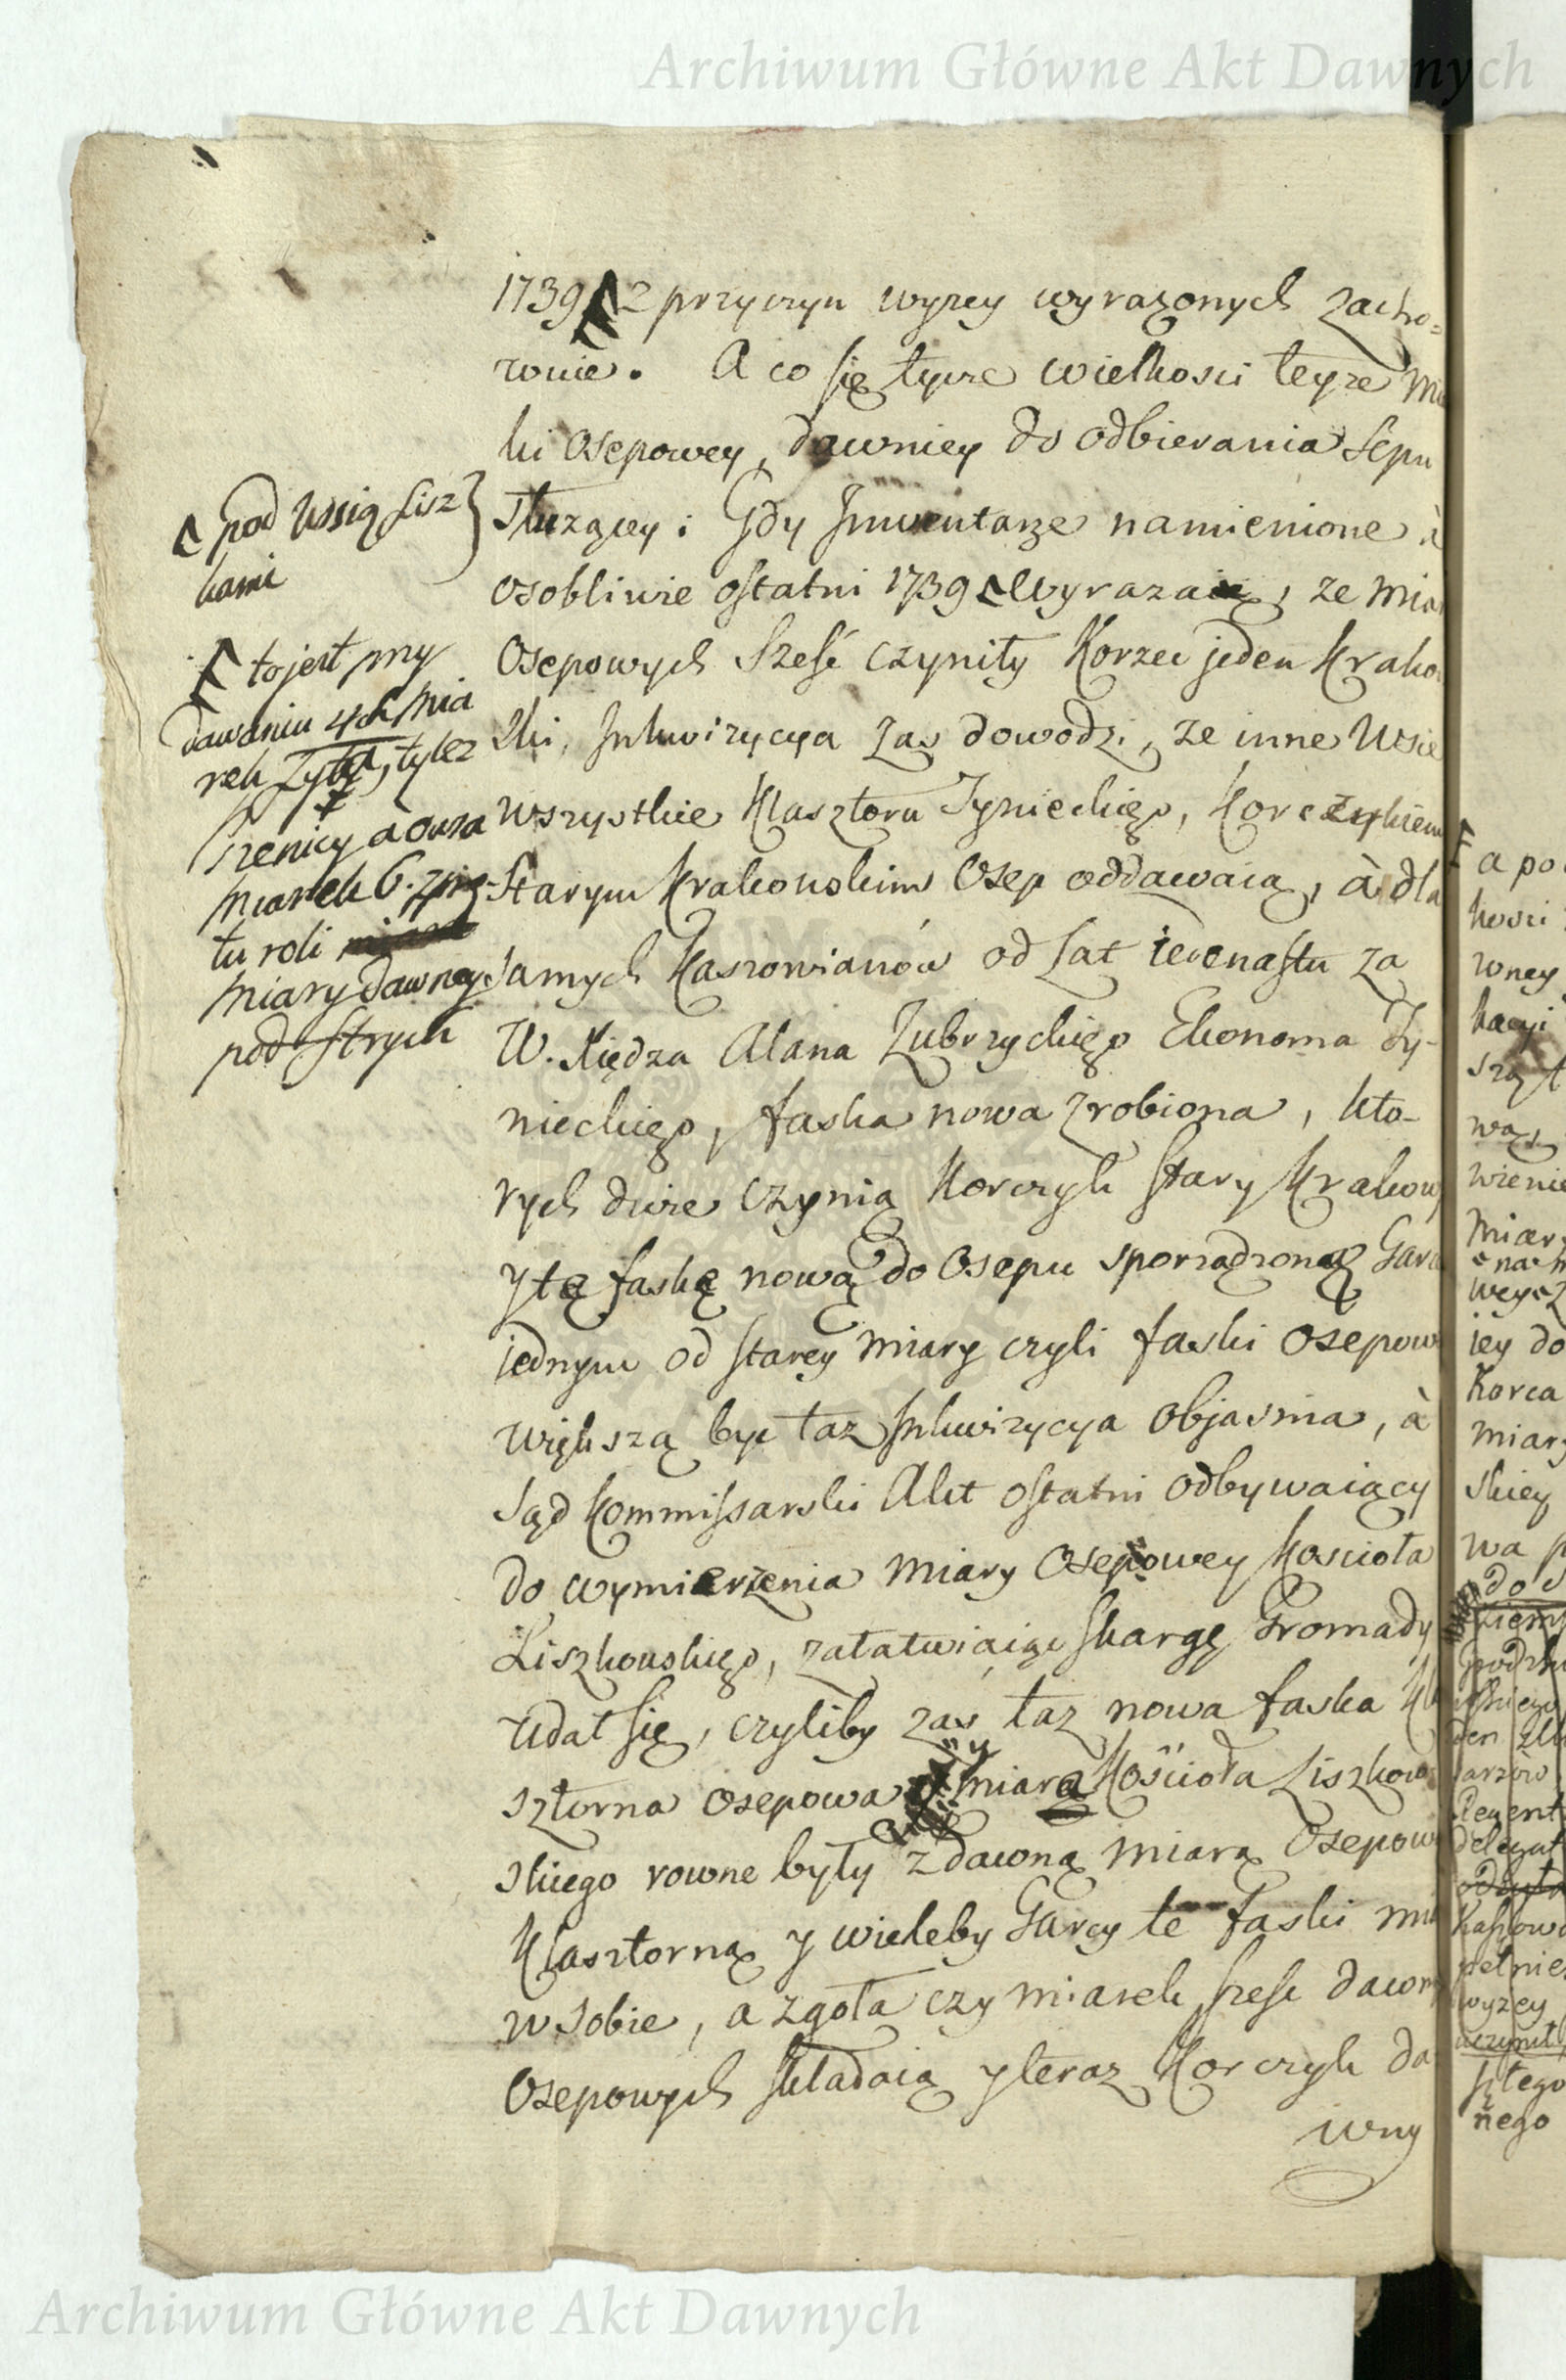 Archiwum Główne Akt Dawnych
1739 z przyczyn wyzey wyrazonych zacho=
wuie. A co się tycze wielkosci teyze Mia
ki Osepowey, dawniey do odbierania Sepu
służącey: Gdy Inwentarze namienione à
osobliwie ostatni 1739 wyrazaią, ze Mia
Osepowych Sześć czyniły Korzec jeden Krako
ski, Inkwizycya zas dowodzi, ze inne Wsie
wszystkie Klasztoru Tynieckiego, Korczykiem
Starym Krakowskim Osep oddawaią, à dla
samych Kaszowianów od Lat iedenastu za
W. Xiędza Alana Zubrzyckiego Ekonoma Ty-
nieckiego, faska nowa zrobiona, kto-
rych dwie czynią Korczyk stary Krakow
y tę faskę nową do Osepu sporządzoną Garc
jednym od starey miary czyli faski Osepow
większą byc taz Inkwizycya objasnia, à
Sąd Kommissarski Akt ostatni odbywaiący
do wymierzenia miary Osepowey Koscioła
Liszkowskiego, załatwiaiąc skargę Gromady
udał się, czyliby zas taz nowa faska Kla
sztorna osepowa y miara Kościoła Liszkow
skiego rowne były z dawną miarą Osepow
Klasztorną y wieleby Garcy te faski mia
w sobie, a zgoła czy miarek szesc dawn
Osepowych składaią y teraz Korczyk da
wny
pod Wsią Lisz
kami
to jest przy
dawaniu 4ch Mia
rek Zyta, tylez
Pszenicy a owsa
miarek 6. z prę
tu roli
miary dawney
pod strych
a po
kosci
wney
kacyi
szą
wą
wienie
miar
na
wey
iey do
Korca
miar
skiey
wa
do
Kaszow
pełnie
wyzey
uczynił
tego
nego
Archiwum Główne Akt Dawnych